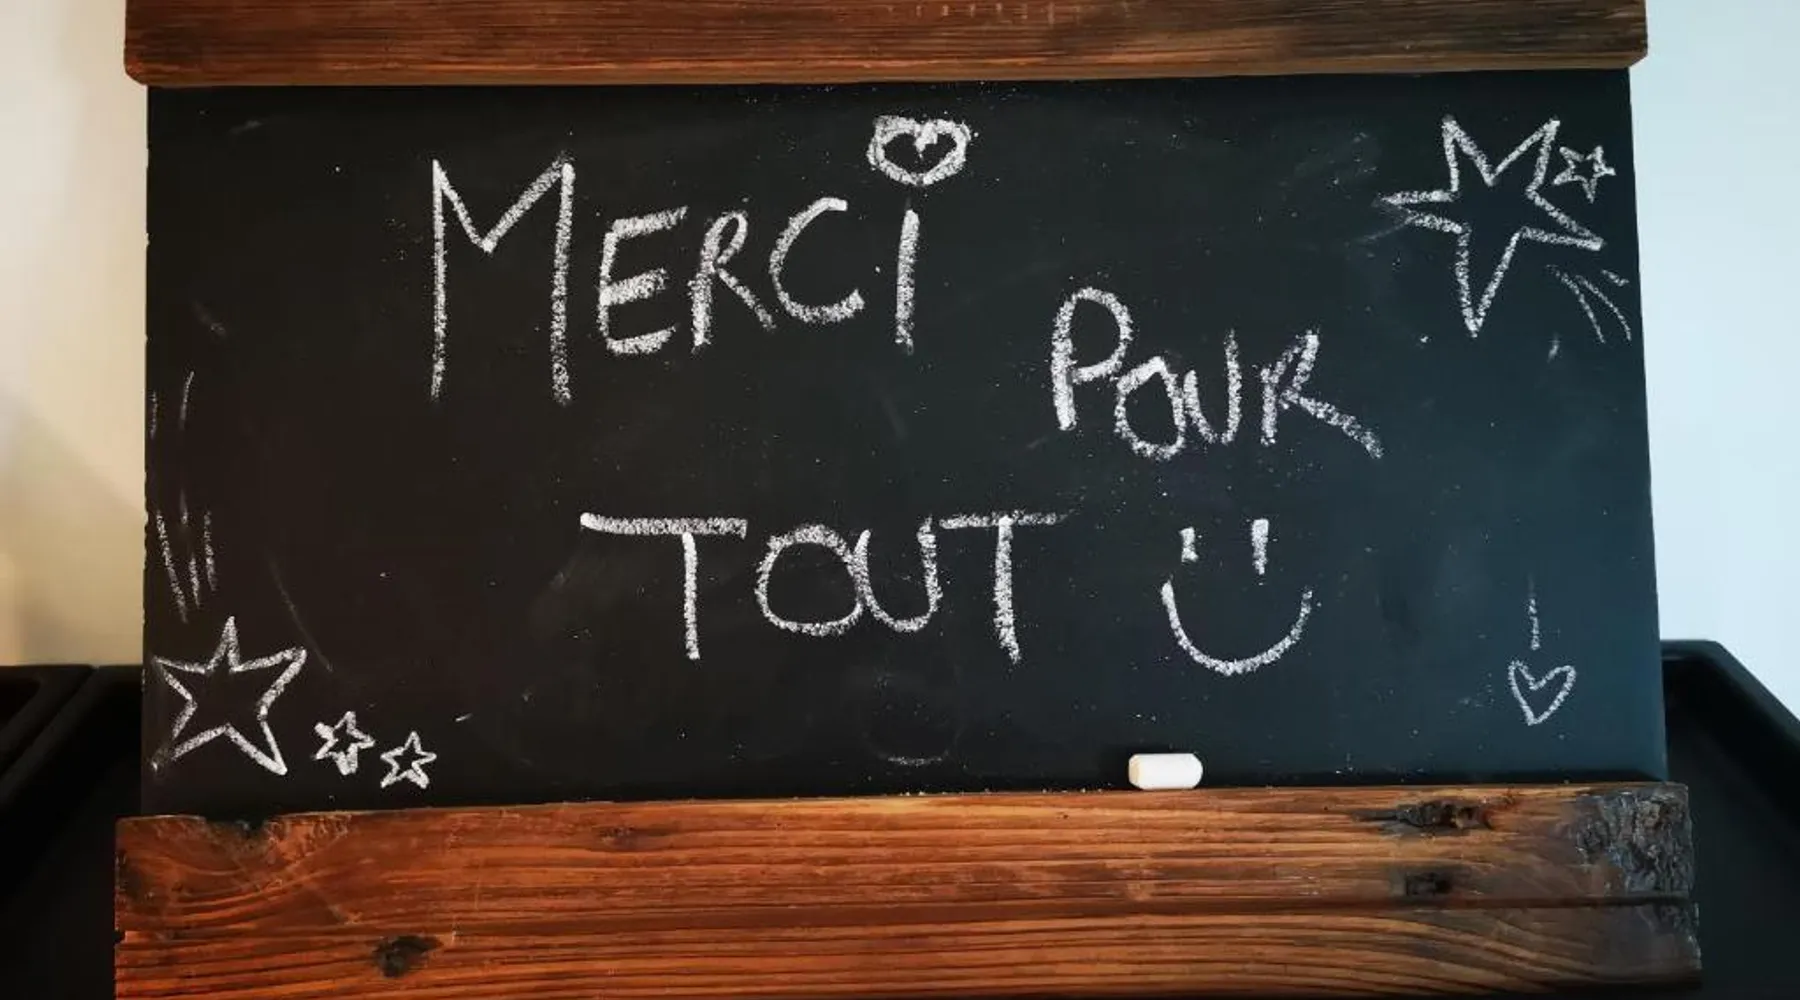 MERCi
POUR
TOUT